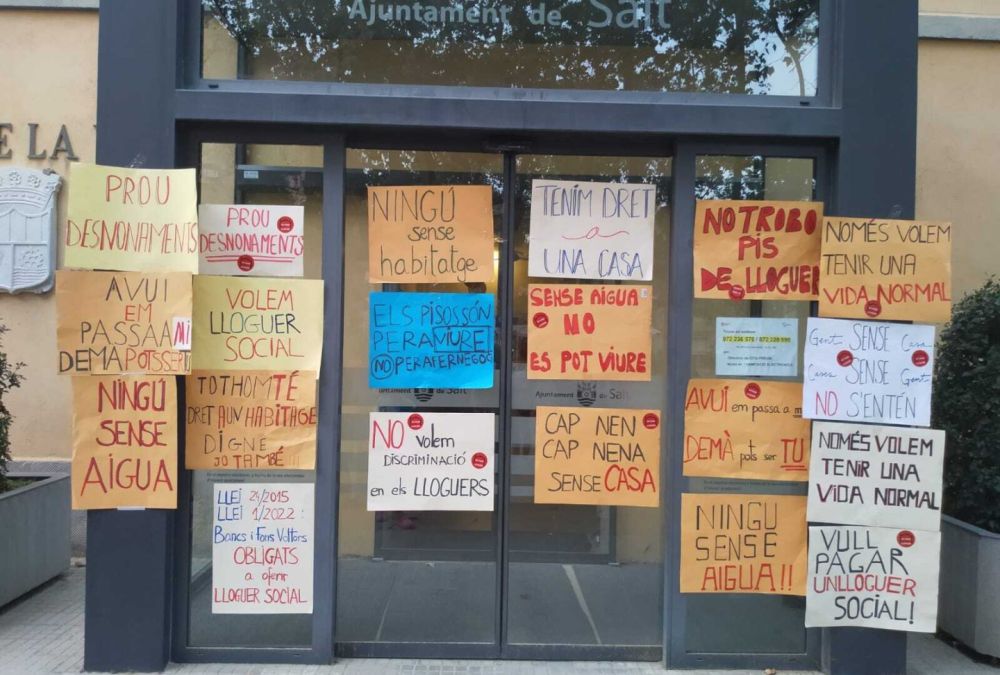 Ajuntament de Salt
E LA
PROU
DESNONAMENTS
PROU
DESNONAMENTS
NINGÚ
sense
habitatge
TENIM DRET
a
UNA CASA
NO TROBO
PIS
DE LLOGUER
NOMÉS VOLEM
TENIR UNA
VIDA NORMAL
AVUI
EM
PASSA A MI
DEMÀ POTS SER T
VOLEM
LLOGUER
SOCIAL
ELS PISOS SÓN
PER A VIURE
NO PER A FER NEGOCI
SENSE AIGUA
NO
ES POT VIURE
972 234 576 / 972 128 590
Gent SENSE Casa
Cases SENSE Gent
NO S'ENTÉN
NINGÚ
SENSE
AIGUA
TOTHOM TÉ
DRET A UN HABITAGE
DIGNE
JO TAMBÉ!!!
Ajuntament de Salt
NO volem
DISCRIMINACIÓ
en els LLOGUERS
CAP NEN
CAP NENA
SENSE CASA
AVUI em passa a m
DEMÀ pots ser TU
NOMÉS VOLEM
TENIR UNA
VIDA NORMAL
LLEI 24/2015
LLEI 1/2022:
Bancs i Fons Voltors
OBLIGATS
a oferir
LLOGUER SOCIAL
NINGU
SENSE
AIGUA!!
VULL
PAGAR
UN LLOGUER
SOCIAL!